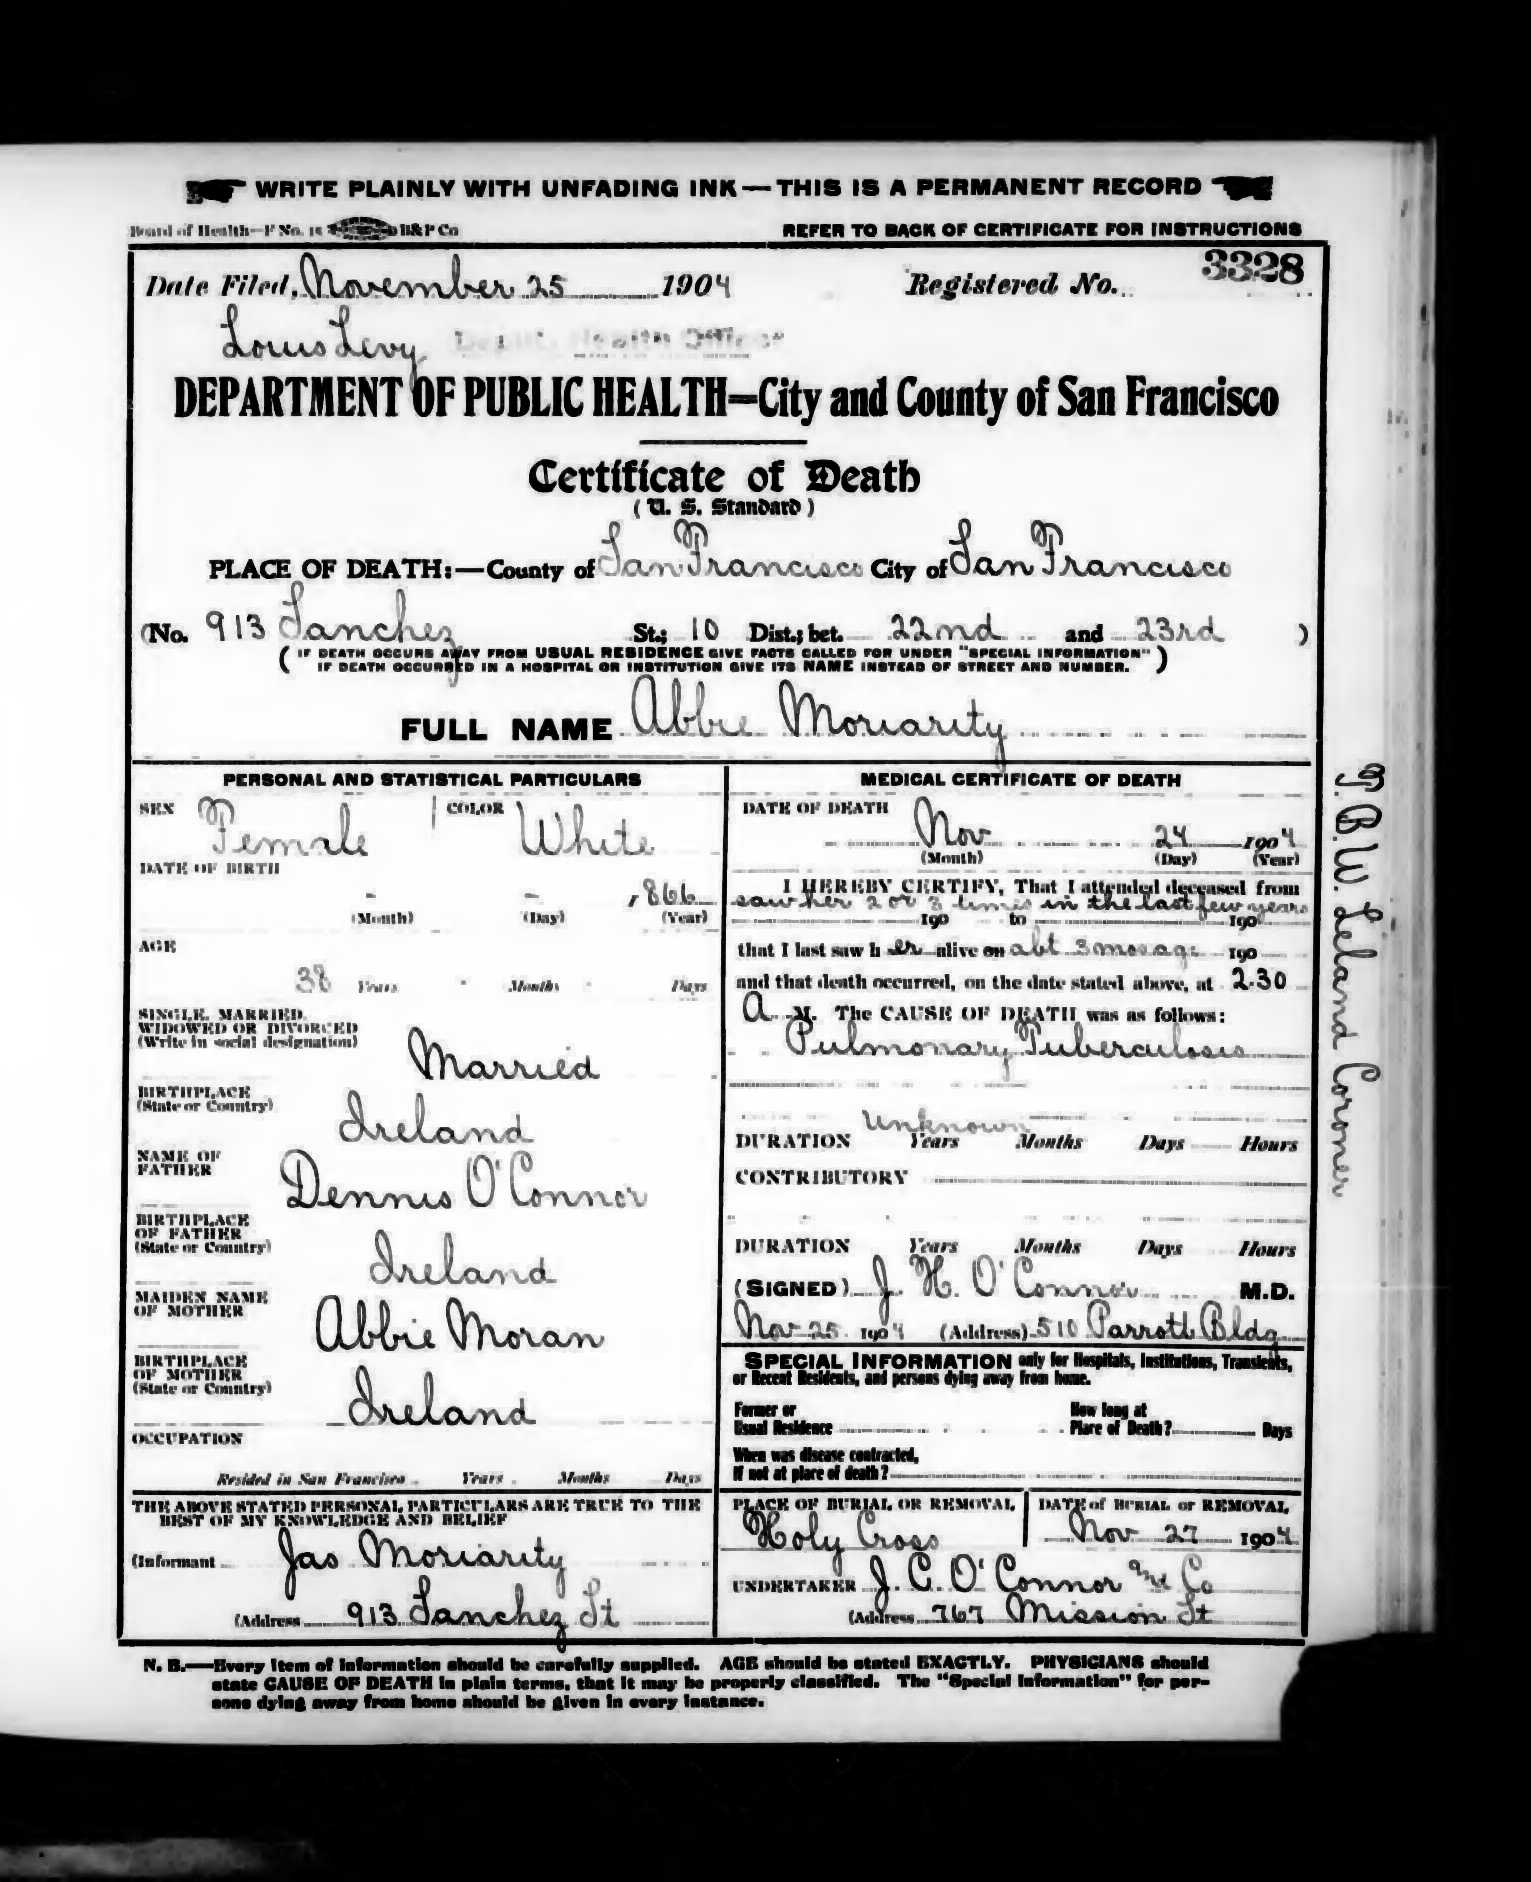 WRITE PLAINLY WITH UNFADING INK — THIS IS A PERMANENT RECORD
Board of Health—F No. 15 B&P Co
REFER TO BACK OF CERTIFICATE FOR INSTRUCTIONS
Date Filed, November 25 1904 Registered No. 3328
Louis Levy Deputy Health Officer
DEPARTMENT OF PUBLIC HEALTH—City and County of San Francisco
Certificate of Death
(U. S. Standard)
PLACE OF DEATH:—County of San Francisco City of San Francisco
(No. 913 Sanchez St.; 10 Dist.; bet. 22nd and 23rd )
( IF DEATH OCCURS AWAY FROM USUAL RESIDENCE GIVE FACTS CALLED FOR UNDER "SPECIAL INFORMATION"
IF DEATH OCCURRED IN A HOSPITAL OR INSTITUTION GIVE ITS NAME INSTEAD OF STREET AND NUMBER. )
FULL NAME Abbie Moriarity
PERSONAL AND STATISTICAL PARTICULARS
SEX Female COLOR White
DATE OF BIRTH
- - , 866
(Month) (Day) (Year)
AGE
38 Years Months Days
SINGLE, MARRIED,
WIDOWED OR DIVORCED
(Write in social designation)
Married
BIRTHPLACE
(State or Country)
Ireland
NAME OF
FATHER
Dennis O'Connor
BIRTHPLACE
OF FATHER
(State or Country)
Ireland
MAIDEN NAME
OF MOTHER
Abbie Moran
BIRTHPLACE
OF MOTHER
(State or Country)
Ireland
OCCUPATION
Resided in San Francisco Years Months Days
THE ABOVE STATED PERSONAL PARTICULARS ARE TRUE TO THE
BEST OF MY KNOWLEDGE AND BELIEF
(Informant Jas Moriarity
(Address 913 Sanchez St
MEDICAL CERTIFICATE OF DEATH
DATE OF DEATH
Nov 24 1904
(Month) (Day) (Year)
I HEREBY CERTIFY, That I attended deceased from
saw her 2 or 3 times in the last few years
190 to 190
that I last saw h er alive on abt 3 mos ago 190
and that death occurred, on the date stated above, at 2.30
A M. The CAUSE OF DEATH was as follows:
Pulmonary Tuberculosis
Unknown
DURATION Years Months Days Hours
CONTRIBUTORY
DURATION Years Months Days Hours
(SIGNED) J. H. O'Connor M.D.
Nov 25 1904 (Address) 510 Parrott Bldg
SPECIAL INFORMATION only for Hospitals, Institutions, Transients,
or Recent Residents, and persons dying away from home.
Former or
Usual Residence
How long at
Place of Death? Days
When was disease contracted,
If not at place of death?
PLACE OF BURIAL OR REMOVAL
Holy Cross
DATE of BURIAL or REMOVAL
Nov 27 1904
UNDERTAKER J. C. O'Connor and Co
(Address 767 Mission St
N. B.—Every item of information should be carefully supplied. AGE should be stated EXACTLY. PHYSICIANS should
state CAUSE OF DEATH in plain terms, that it may be properly classified. The "Special Information" for per-
sons dying away from home should be given in every instance.
T. B. W. Leland Coroner